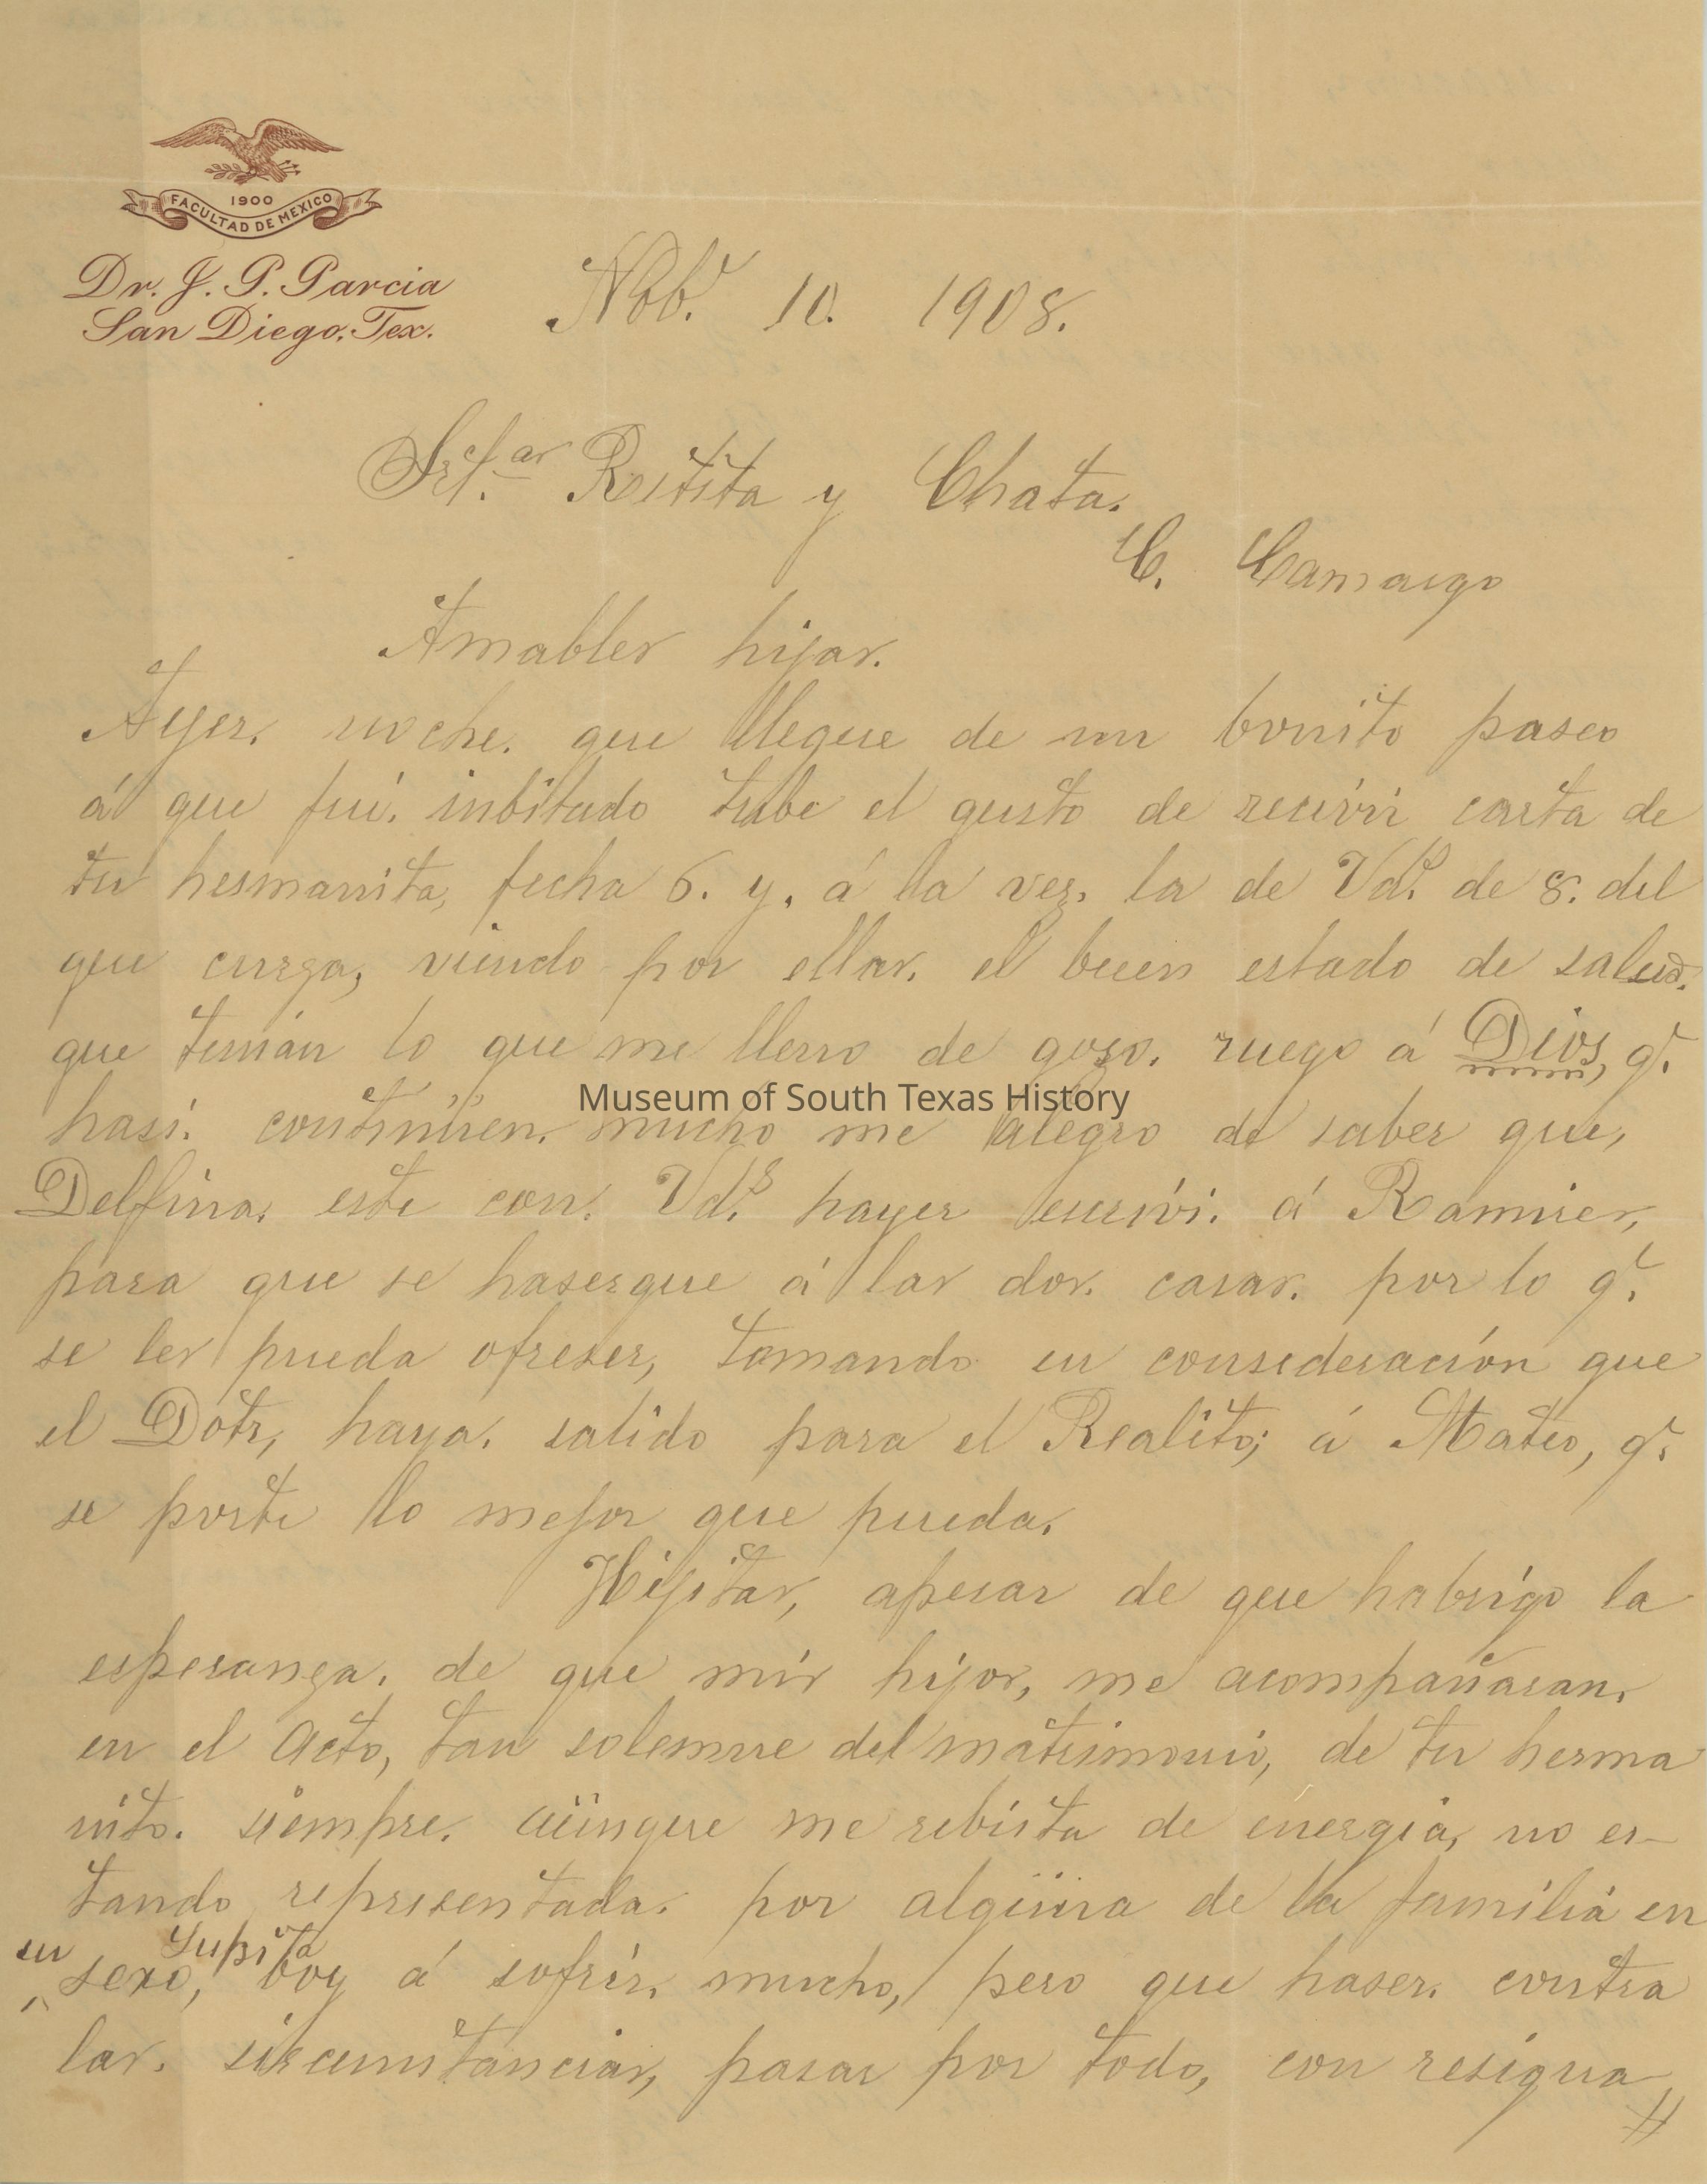 1900
FACULTAD DE MEXICO
Dr. J. P. Garcia
San Diego, Tex.
Nobe. 10. 1908.
Srt.as Ritita y Chata.
C. Camargo
Amables hijas.
Ayer. noche. que llegue de un bonito paseo
á que fui. inbitado tube el gusto de recivir carta de
tu hermanita, fecha 6. y. á la vez. la de Vd.s de 8. del
que cursa, viendo por ellas. el buen estado de salud.
que tenián lo que me lleno de goso. ruego á Dios, q.e
hasi. contínúen. mucho me alegro de saber que,
Delfina. este con. Vd.s hayer escriví. á Ramires,
para que se haserque á las dos. casas. por lo q.e
se les pueda ofreser, tomando en consideración que
el Dotr, haya. salido para el Realito; á Mateo, q.e
se porte lo mejor que pueda.
Hijitas, apesar de que habrigo la
esperanza. de que mis hijos, me acompañaran.
en el Acto, tan solemne del matrimonio, de tu herma
nito. siempre. aünque me rebista de energia, no es-
tando representada. por algüna de la familia en
su sexo, Lupita boy á sofrir. mucho, pero que haser. contra
las. sircunstancias, pasar por todo, con resigna
Museum of South Texas History